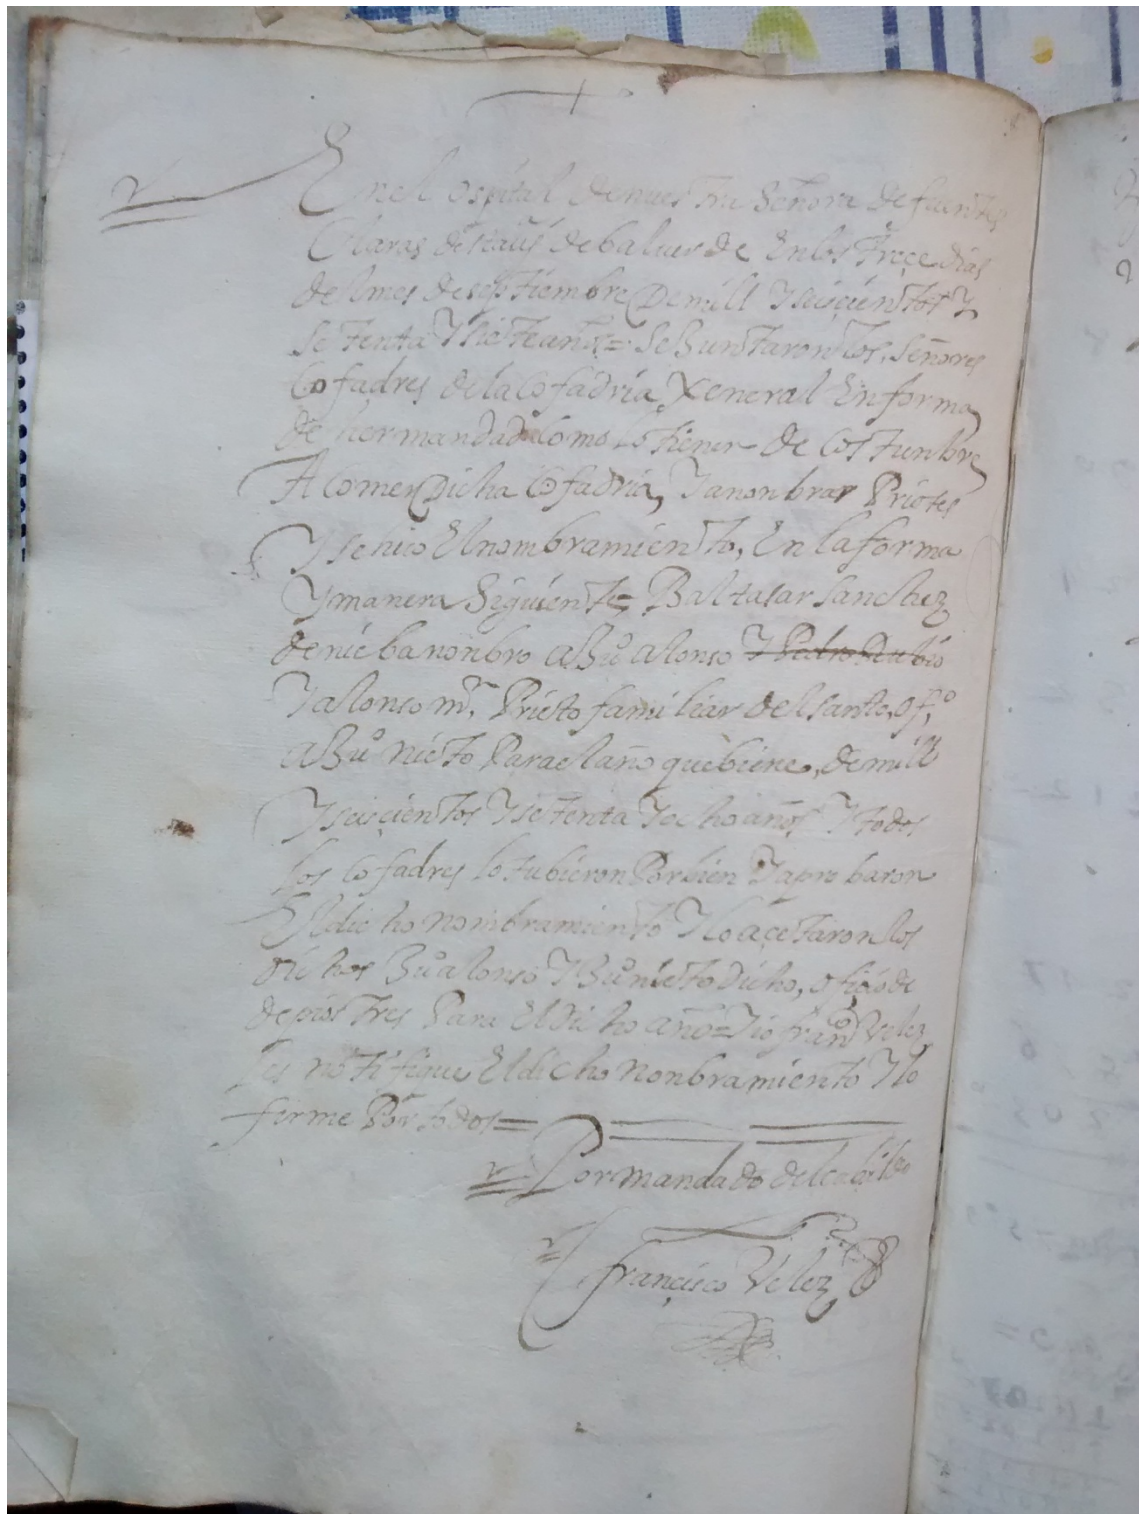 En el ospital de nuestra Señora de fuentes
Claras desta uª de balverde En los treçe dias
del mes de septiembre De mill Y seisçientos Y
setenta Y siete años = se Juntaron los señores
Cofadres de la Cofadria Xeneral En forma
de hermandad Como lo tienen de Costunbre
A Comer Dicha Cofadria, Y a nonbrar Priotes
Y se hiço El nombramiento, En la forma
Y manera Siguiente = Baltasar Sanchez
de nieba nonbro a Juº alonso Y Pedro De
Y alonso mrn Prieto familiar del santo offº
a Juº nieto Para el año que biene, de mill
Y seisçientos Y setenta Y ocho años Y todos
los Cofadres lo tubieron Por bien Y aprobaron
El dicho nombramiento Y lo açetaron los
dichos Juº alonso Y Juº nieto dicho, ofiçio de
de piostres Para El dicho año = Y io franco Velez
les notifique El dicho nonbramiento Y lo
firme Por todos =
Por mandado del cabildo
françisco Velez